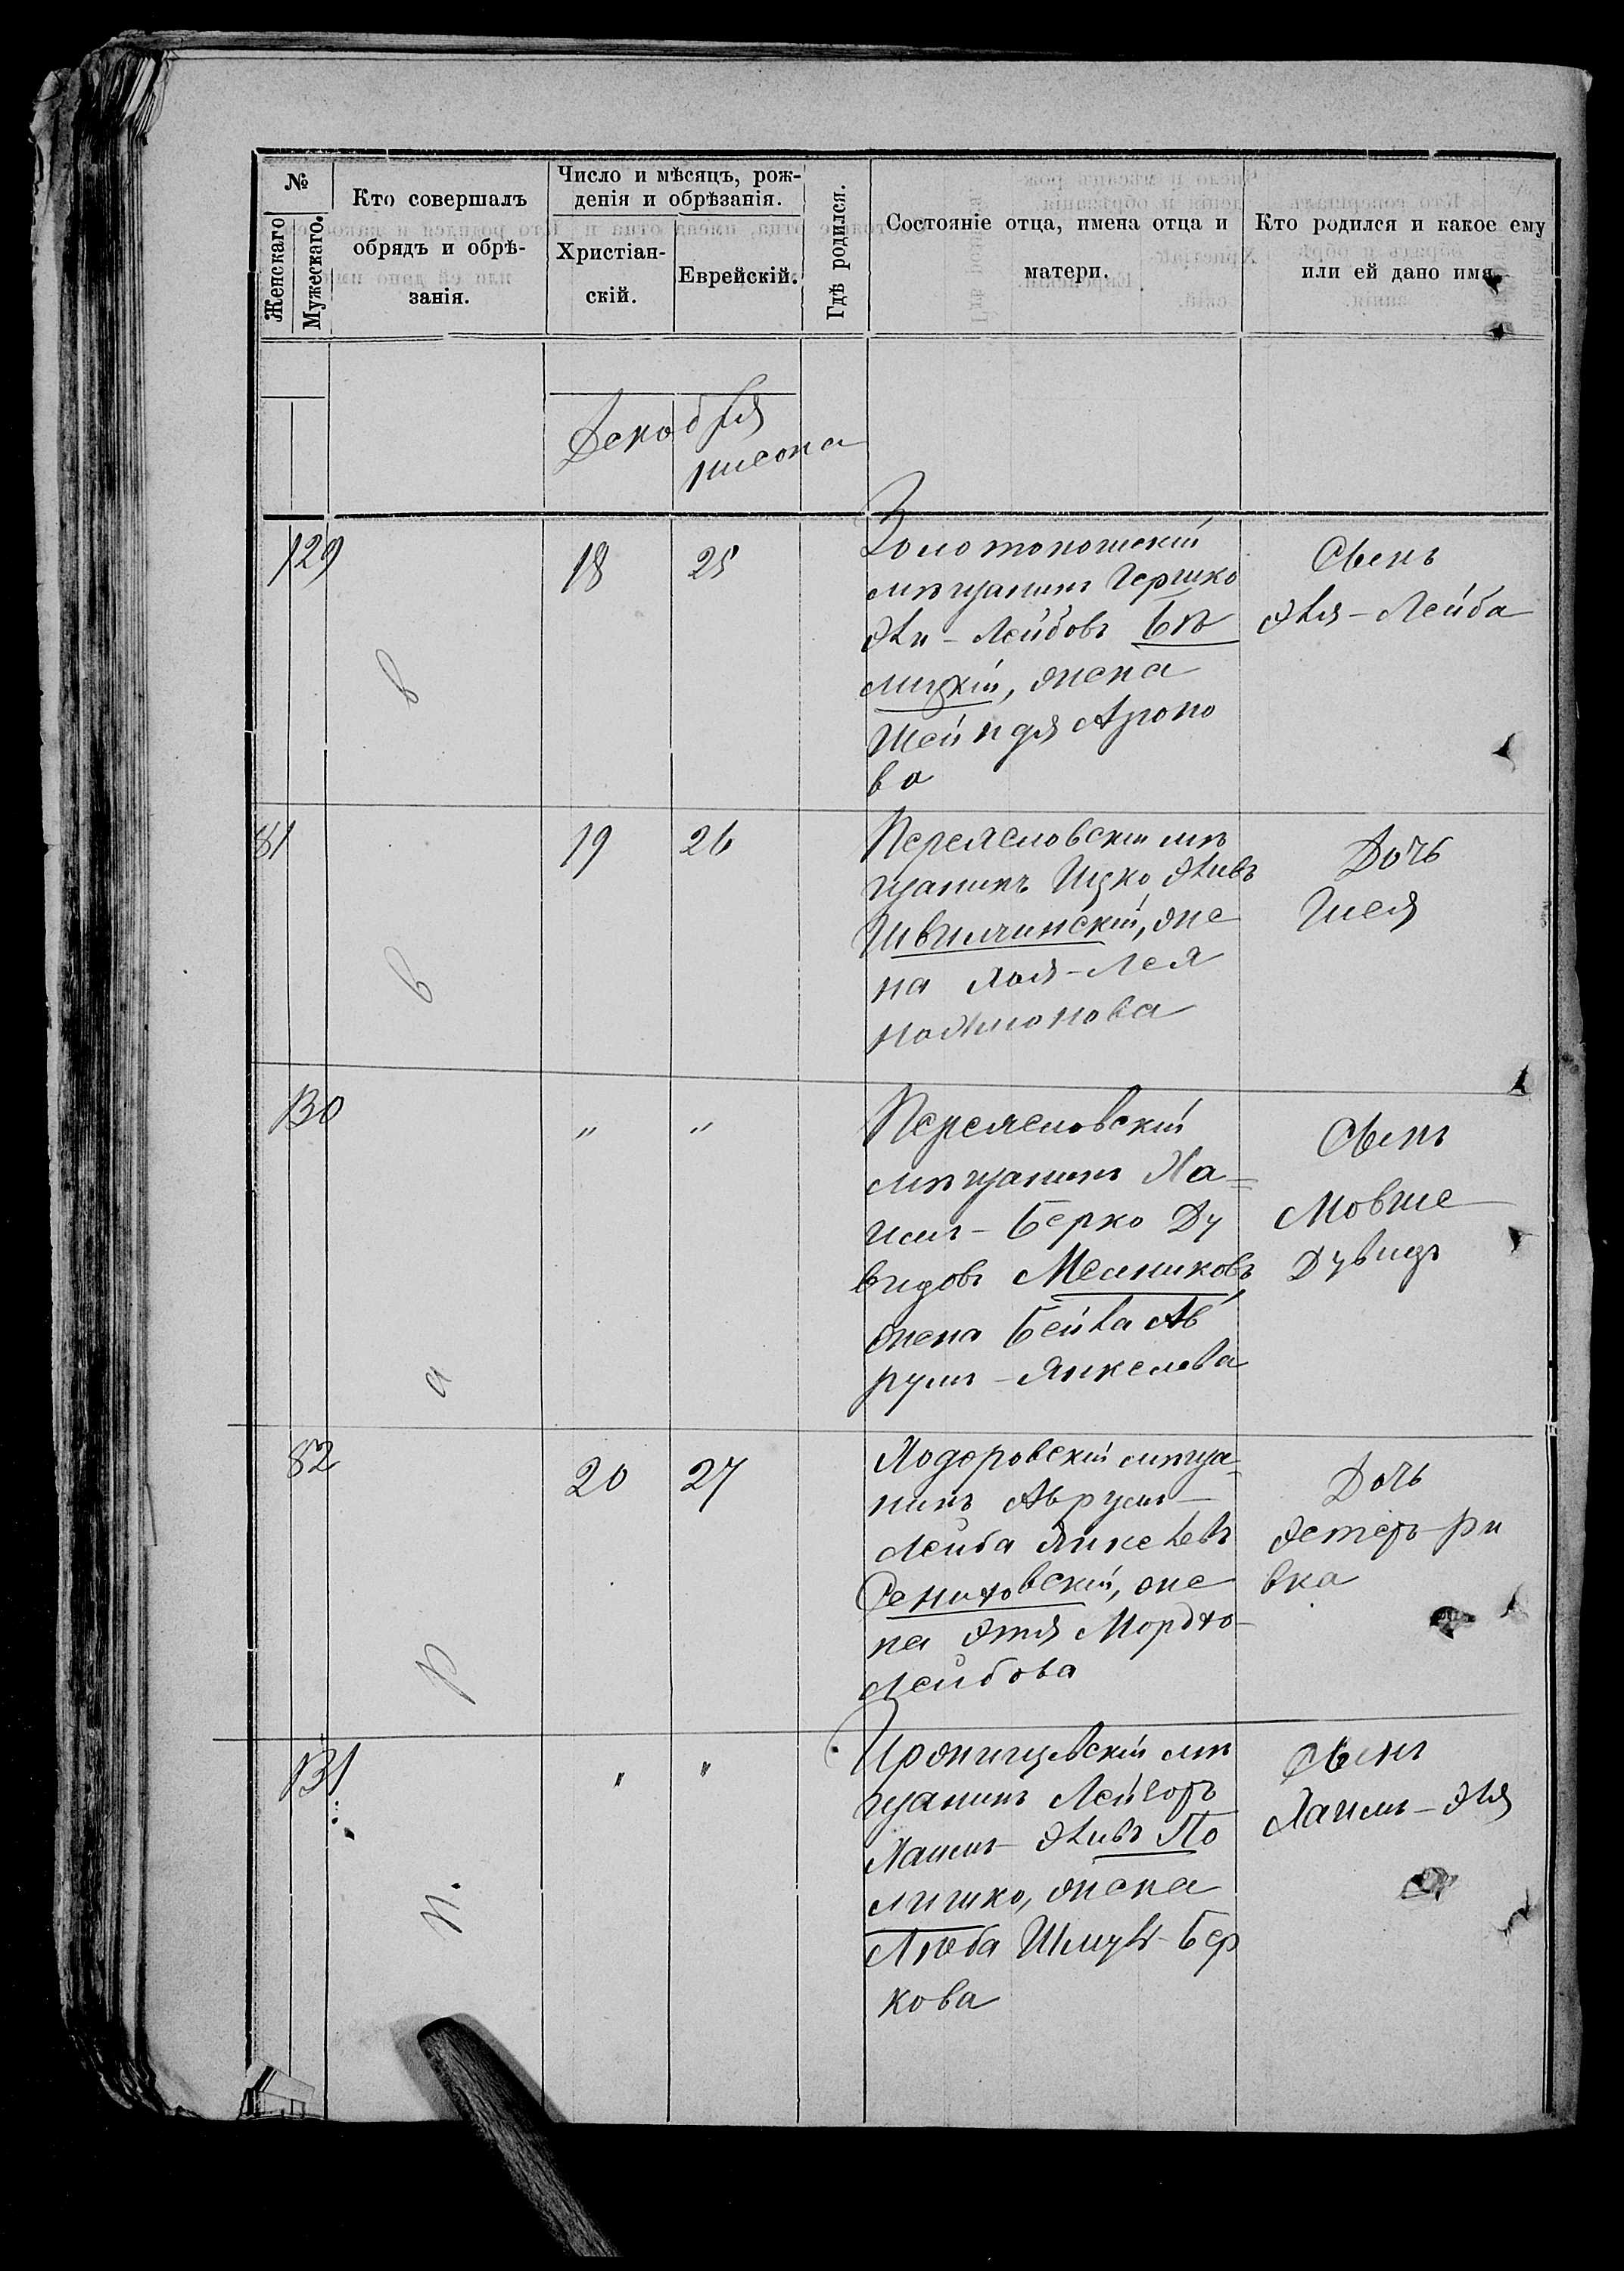 №
Женскаго
Мужескаго.
Кто совершалъ
обрядъ и обрѣ-
занія.
Число и мѣсяцъ, рож-
денія и обрѣзанія.
Христіан-
скій.
Еврейскій.
Гдѣ родился.
Состояніе отца, имена отца и
матери.
Кто родился и какое ему
или ей дано имя.
Декабря
129
в
18
25
Золотоношскій
мѣщанинъ Гершко
Эли-Лейбовъ Бѣ
лицкій, жена
Шейндля Ароно
ва
Сынъ
Эля-Лейба
81
в
19
26
Переяславскій мѣ
щанинъ Ицко Эліовъ
жe
на Хая-Лея
Дочь
130
а
"
"
Переяславскій
мѣщанинъ Ха=
имъ-Берко Ду
видовъ Мельниковъ,
жена Бейла Ав
румъ-Янкелева
Сынъ
Мовше
Дувидъ
82
20
27
мѣща-
нинъ Аврумъ-
Лейба Янкелевъ
жe
на Этя Мордко-
Лейбова
Дочь
Эстеръ-Ри
вка
131
"
"
мѣ
щанинъ Лейзоръ
Хаимъ-Эліовъ По
лишко, жена
Люба Шмуль-Бер
кова
Сынъ
Хаимъ-Эля